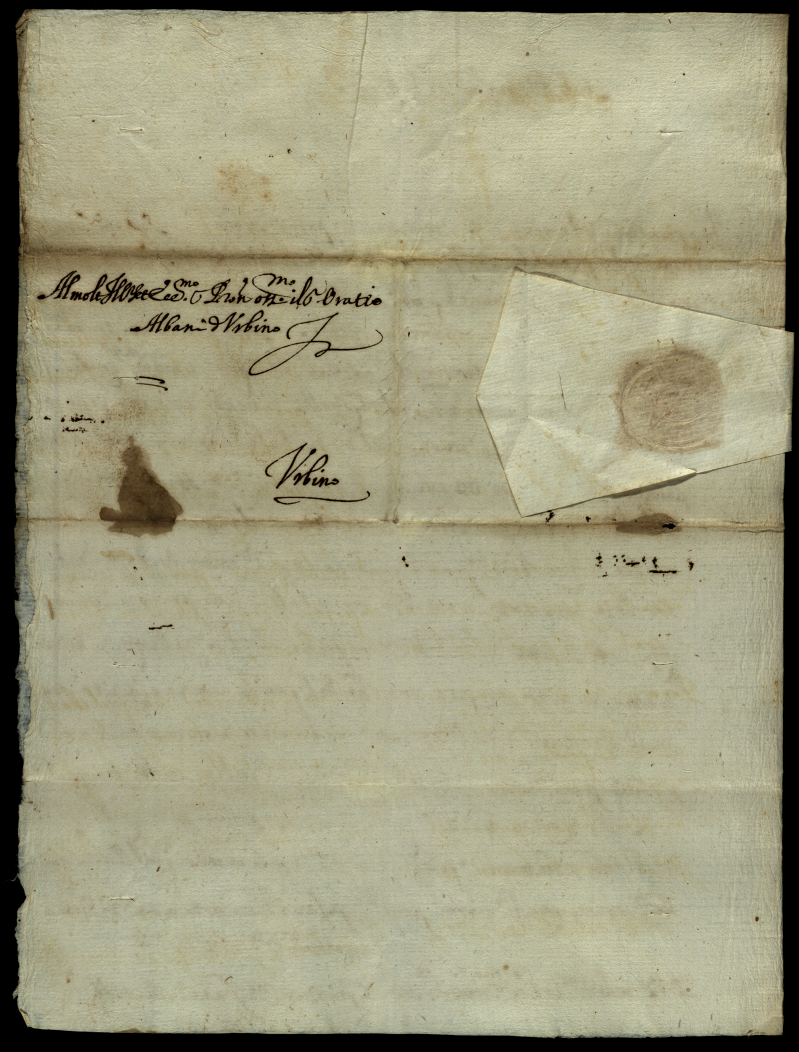 Al molt Ill.re et Ecc.mo S.r P.ron oss.mo il S.r Oratio
Albani d Vrbino
Vrbino